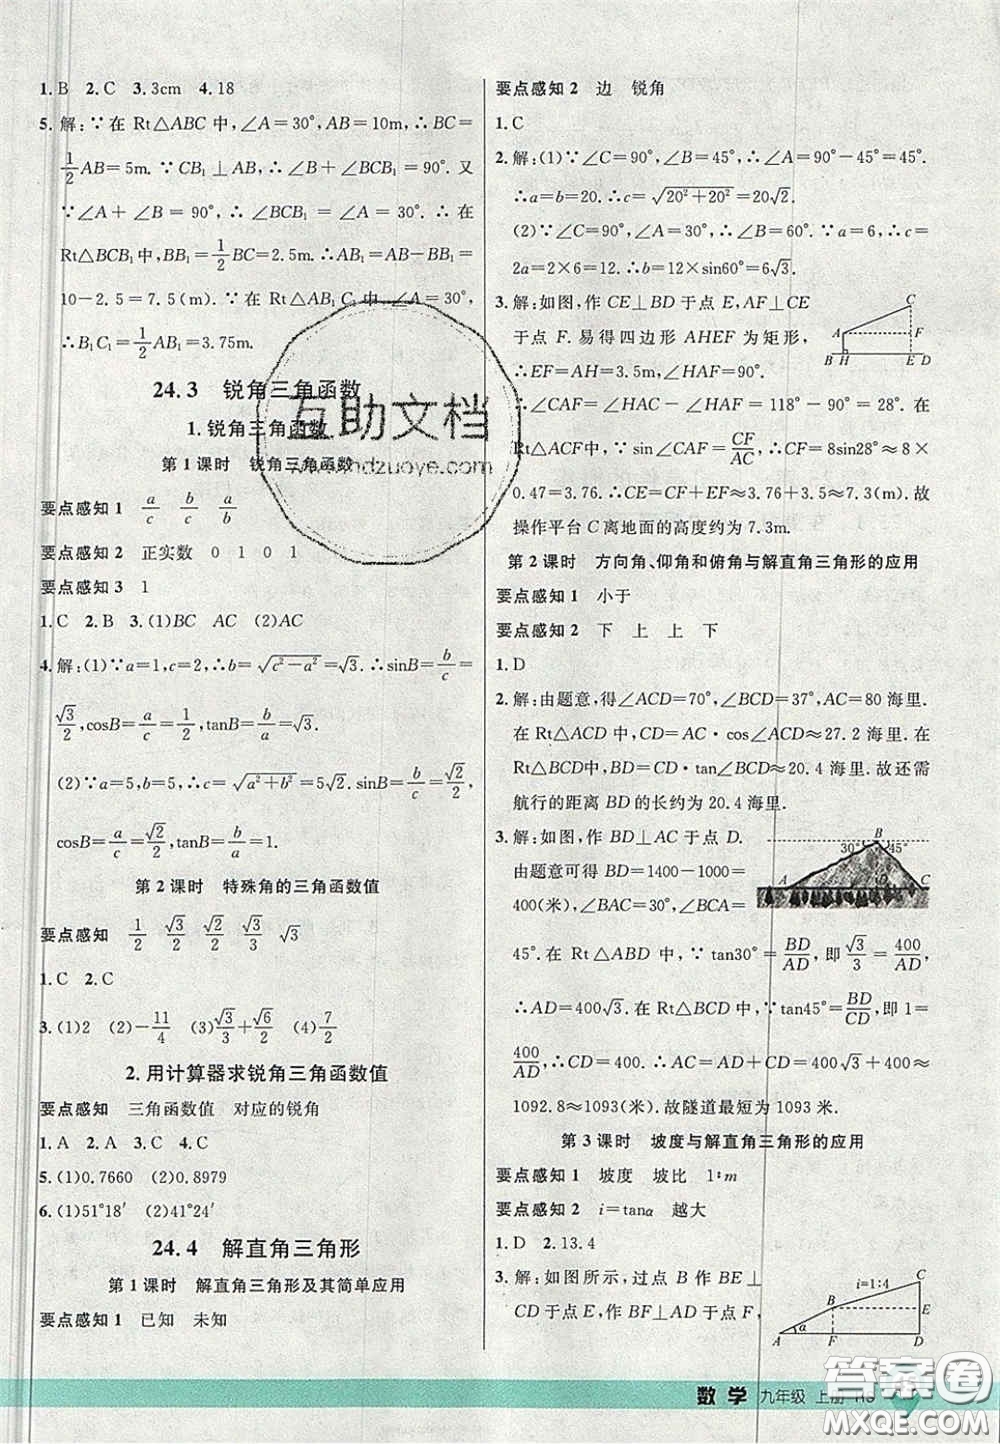 1.B　2.C　3.3cm　4.18
5.解:∵在 Rt△ABC 中,∠A=30°,AB=10m,∴BC=
1/2 AB=5m.∵CB₁⊥AB,∴∠B₁CB+∠ABC=90°.又
∵∠A+∠B=90°,∴∠BCB₁=∠A=30°.∴在
Rt△BCB₁中,BB₁=1/2 BC=2.5m.∴AB₁=AB-BB₁=
10-2.5=7.5(m).∵在 Rt△AB₁C₁中,∠A=30°,
∴B₁C₁=1/2 AB₁=3.75m.
24.3　锐角三角函数
1.锐角三角函数
第1课时　锐角三角函数
要点感知1　a/c　b/c　a/b
要点感知2　正实数　0　1　0　1
要点感知3　1
1.C　2.B　3.(1)BC　AC　(2)AC
4.解:(1)∵a=1,c=2,∴b=√(c²-a²)=√3.∴sinB=b/c=
√3/2,cosB=a/c=1/2,tanB=b/a=√3.
(2)∵a=5,b=5,∴c=√(a²+b²)=5√2.sinB=b/c=√2/2,
cosB=a/c=√2/2,tanB=b/a=1.
第2课时　特殊角的三角函数值
要点感知　1/2　√3/2　√2/2　√3/3　√3
1.C　2.C
3.(1)2　(2)-11/4　(3)√3/3+√6/2　(4)7/2
2.用计算器求锐角三角函数值
要点感知　三角函数值　对应的锐角
1.A　2.A　3.C　4.C
5.(1)0.7660　(2)0.8979
6.(1)51°18′　(2)41°24′
24.4　解直角三角形
第1课时　解直角三角形及其简单应用
要点感知1　已知　未知
要点感知2　边　锐角
1.C
2.解:(1)∵∠C=90°,∠B=45°,∴∠A=90°-45°=45°.
∴a=b=20.∴c=√(20²+20²)=20√2.
(2)∵∠C=90°,∠A=30°,∴∠B=60°.∵a=6,∴c=
2a=2×6=12.∴b=12×sin60°=6√3.
3.解:如图,作 CE⊥BD 于点 E,AF⊥CE
于点 F.易得四边形 AHEF 为矩形,
∴EF=AH=3.5m,∠HAF=90°,
∴∠CAF=∠HAC-∠HAF=118°-90°=28°.在
Rt△ACF中,∵sin∠CAF=CF/AC,∴CF=8sin28°≈8×
0.47=3.76.∴CE=CF+EF≈3.76+3.5≈7.3(m).故
操作平台 C 离地面的高度约为 7.3m.
C
A
F
B
H
E
D
第2课时　方向角、仰角和俯角与解直角三角形的应用
要点感知1　小于
要点感知2　下　上　上　下
1.D
2.解:由题意,得∠ACD=70°,∠BCD=37°,AC=80 海里.
在 Rt△ACD 中,CD=AC·cos∠ACD≈27.2 海里.在
Rt△BCD中,BD=CD·tan∠BCD≈20.4 海里.故还需
航行的距离 BD 的长约为 20.4 海里.
3.解:如图,作 BD⊥AC 于点 D.
由题意可得 BD=1400-1000=
400(米),∠BAC=30°,∠BCA=
45°.在 Rt△ABD 中,∵tan30°=BD/AD,即√3/3=400/AD,
∴AD=400√3.在 Rt△BCD 中,∵tan45°=BD/CD,即1=
400/AD,∴CD=400.∴AC=AD+CD=400√3+400≈
1092.8≈1093(米).故隧道最短为 1093 米.
B
30°
45°
A
D
C
第3课时　坡度与解直角三角形的应用
要点感知1　坡度　坡比　1∶m
要点感知2　i=tanα　越大
1.D　2.13.4
3.解:如图所示,过点 B 作 BE⊥
CD于点E,作 BF⊥AD于点F,
i=1:4
C
B
E
α
A
F
D
互助文档
数学　九年级　上册
答案圈
MXQE.COM